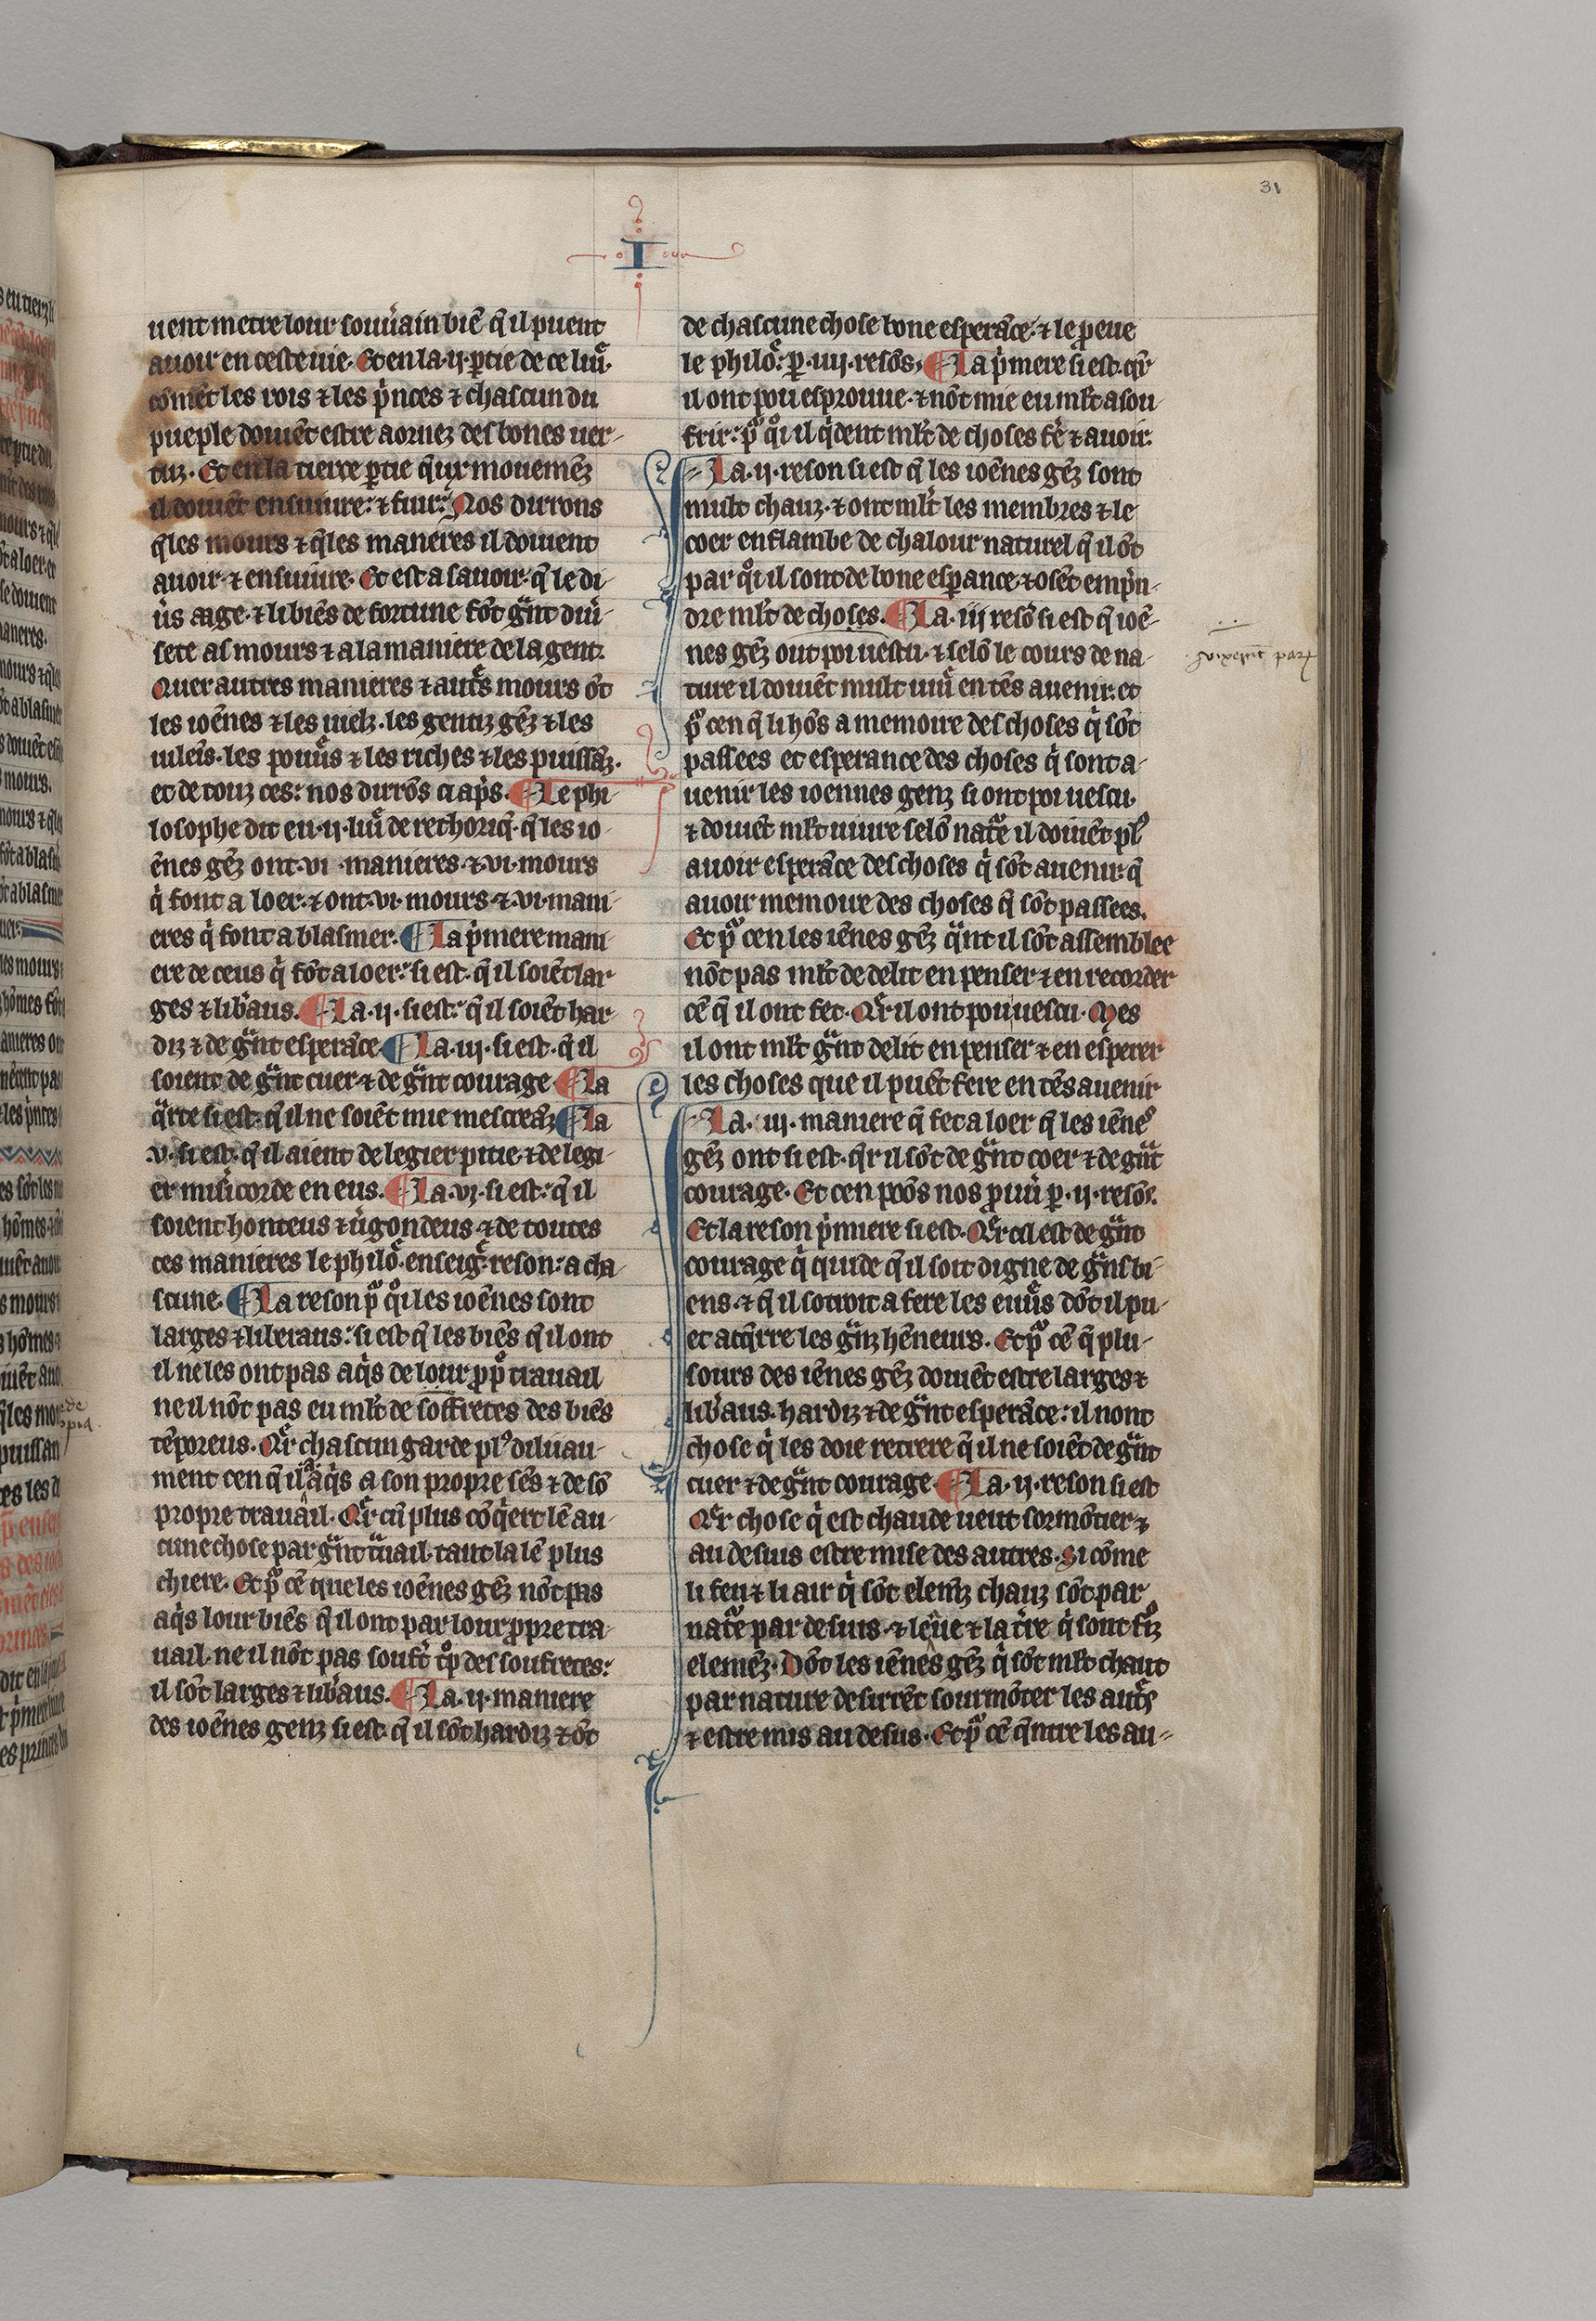 31
I
uent metre lour souu̾ain biē q̄ il puent
auoir en ceste uie. Et en la .ij. ꝑtie de ce liu̾.
cōmēt les rois ⁊ les p̾nces ⁊ chascun du
pueple doiuēt estre aornez des bones uer-
tuz. Et en la tierce ꝑtie q̄ux mouemēz
il doiuēt ensuiure: ⁊ fuir: Nos dirrons
q̄les mours ⁊ q̄les maneres il doiuent
auoir ⁊ ensuiure. Et est a sauoir. q̄ le di-
u̾s aage. ⁊ li biēs de fortune fōt gᵃnt diu̾-
sete as mours ⁊ a la maniere de la gent.
Quer autres manieres ⁊ aut̾s mours ōt
les ioēnes ⁊ les uielz. les gentiz gēz ⁊ les
uileīs. les pouu̾s ⁊ les riches ⁊ les puissāz.
et de touz ces: nos dirrōs ci ap̾s. ¶ Le phi-
losophe dit eu .ij. liu̾ de rethoriq̄. q̄ les io-
ēnes gēz ont .vi. manieres. ⁊ .vi. mours
qⁱ font a loer. ⁊ ont .vi. mours. ⁊ .vi. mani-
eres qⁱ font a blasmer. ¶ La p̾mere mani
ere de ceus qⁱ fōt a loer: si est. q̄ il soiēt lar
ges ⁊ lib̾aus. ¶ La .ij. si est: q̄ il soiēt har-
diz ⁊ de gᵃnt esperāce. ¶ La .iij. si est. q̄ il
soient de gᵃnt cuer ⁊ de gᵃnt courage ¶ La
qᵃrte si est. q̄ il ne soiēt mie mescreāz ¶ La
.v. si est. q̄ il aient de legier pitie. ⁊ de legi-
er mis̾icorde en eus. ¶ La .vj. si est: q̄ il
soient honteus ⁊ u̾gondeus. ⁊ de toutes
ces manieres le philō. enseig̾. reson: a cha
scune. ¶ La reson pᵒ qᵒi les ioēnes sont
larges ⁊ liberaus: si est q̄ les biēs q̄ il ont
il ne les ont pas aqⁱs de lour ꝓpᵉ trauail
ne il nōt pas eu ml̄t de soffretes des biēs
tēporeus. Qᵃr chascun garde plꝰ diluau-
ment cen q̄ il a aqⁱs a son propre sēs ⁊ de sō
propre trauail. Qᵃr cū plus cōqⁱert lē au-
cune chose par gᵃnt tᵃuail. tant la lē plus
chiere. Et pᵒ cē que les ioēnes gēz nōt pas
aqⁱs lour biēs q̄ il ont par lour ꝓpre tra-
uail. ne il nōt pas souf̾t tᵒp des soufretes:
il sōt larges ⁊ lib̾aus. ¶ La .ij. maniere
des ioēnes genz si est. q̄ il sōt hardiz ⁊ ōt
de chascune chose bone esperāce. ⁊ le ꝓeue
le philō̾: ꝑ .iiij. resōs, ¶ La p̾mere si est. qᵃr
il ont poi esprouue. ⁊ nōt mie eu ml̄t a sou-
frir: pᵒ qᵒi il qⁱdent ml̄t de choses fe̾ ⁊ auoir.
La .ij. reson si est q̄ les ioēnes gēz sont
mult chauz. ⁊ ont ml̄t les membres ⁊ le
coer enflambe de chalour naturel q̄ il ōt
par qᵒi il sont de bone esꝑance. ⁊ osēt emp̾n-
dre ml̄t de choses. ¶ La .iij resō si est q̄ ioē-
nes gēz ont poi uescu. ⁊ selō le cours de na-
ture il doiuēt mult uiu̾ en tēs auenir. et
pᵒ cen q̄ li hōs a memoire des choses qⁱ sōt
passees et esperance des choses qⁱ sont a-
uenir les ioennes genz si ont poi uescu.
⁊ doiuēt ml̄t uiure selō nat̾e il doiuēt plꝰ
auoir esperāce des choses qⁱ sōt auenir. q̄
auoir memoire des choses q̄ sōt passees.
Et pᵒ cen les iēnes gēz qᵃnt il sōt assemblee
nōt pas ml̄t de delit en penser ⁊ en recorder
cē q̄ il ont fet. Qᵃr il ont poi uescu. Mes
il ont ml̄t gᵃnt delit en penser ⁊ en esperer
les choses que il puēt fere en tēs auenir
La .iij. maniere q̄ fet a loer q̄ les iēnes
gēz ont si est. qᵃr il sōt de gᵃnt coer ⁊ de gᵃnt
courage. Et cen poōs nos ꝓuu̾ ꝑ .ij. resōs.
Et la reson p̾miere si est. Qᵃr cil est de gᵃnt
courage qⁱ quide q̄ il soit digne de gᵃns bi-
ens. ⁊ q̄ il sotroit a fere les euu̾s dōt il pu-
et aqⁱrre les gᵃnz hēneurs. Et pᵒ cē q̄ plu-
sours des iēnes gēz doiuēt estre larges ⁊
lib̾aus. hardiz ⁊ de gᵃnt esperāce: il nont
chose qⁱ les doie retrere q̄ il ne soiēt de gᵃnt
cuer ⁊ de gᵃnt courage ¶ La .ij. reson si est
Qᵃr chose qⁱ est chaude ueut sormōtier ⁊
au desuus estre mise des autres. Si cōme
li feu ⁊ li air qⁱ sōt elemēz chauz sōt par
nat̾e par desuus. ⁊ leue ⁊ la t̾re qⁱ sont frᵒiz
elemēz. Dōt les iēnes gēz qⁱ sōt ml̄t chaut
par nature desirrēt sourmōter les aut̾s
⁊ estre mis au desus. Et pᵒ cē q̄ntre les au-